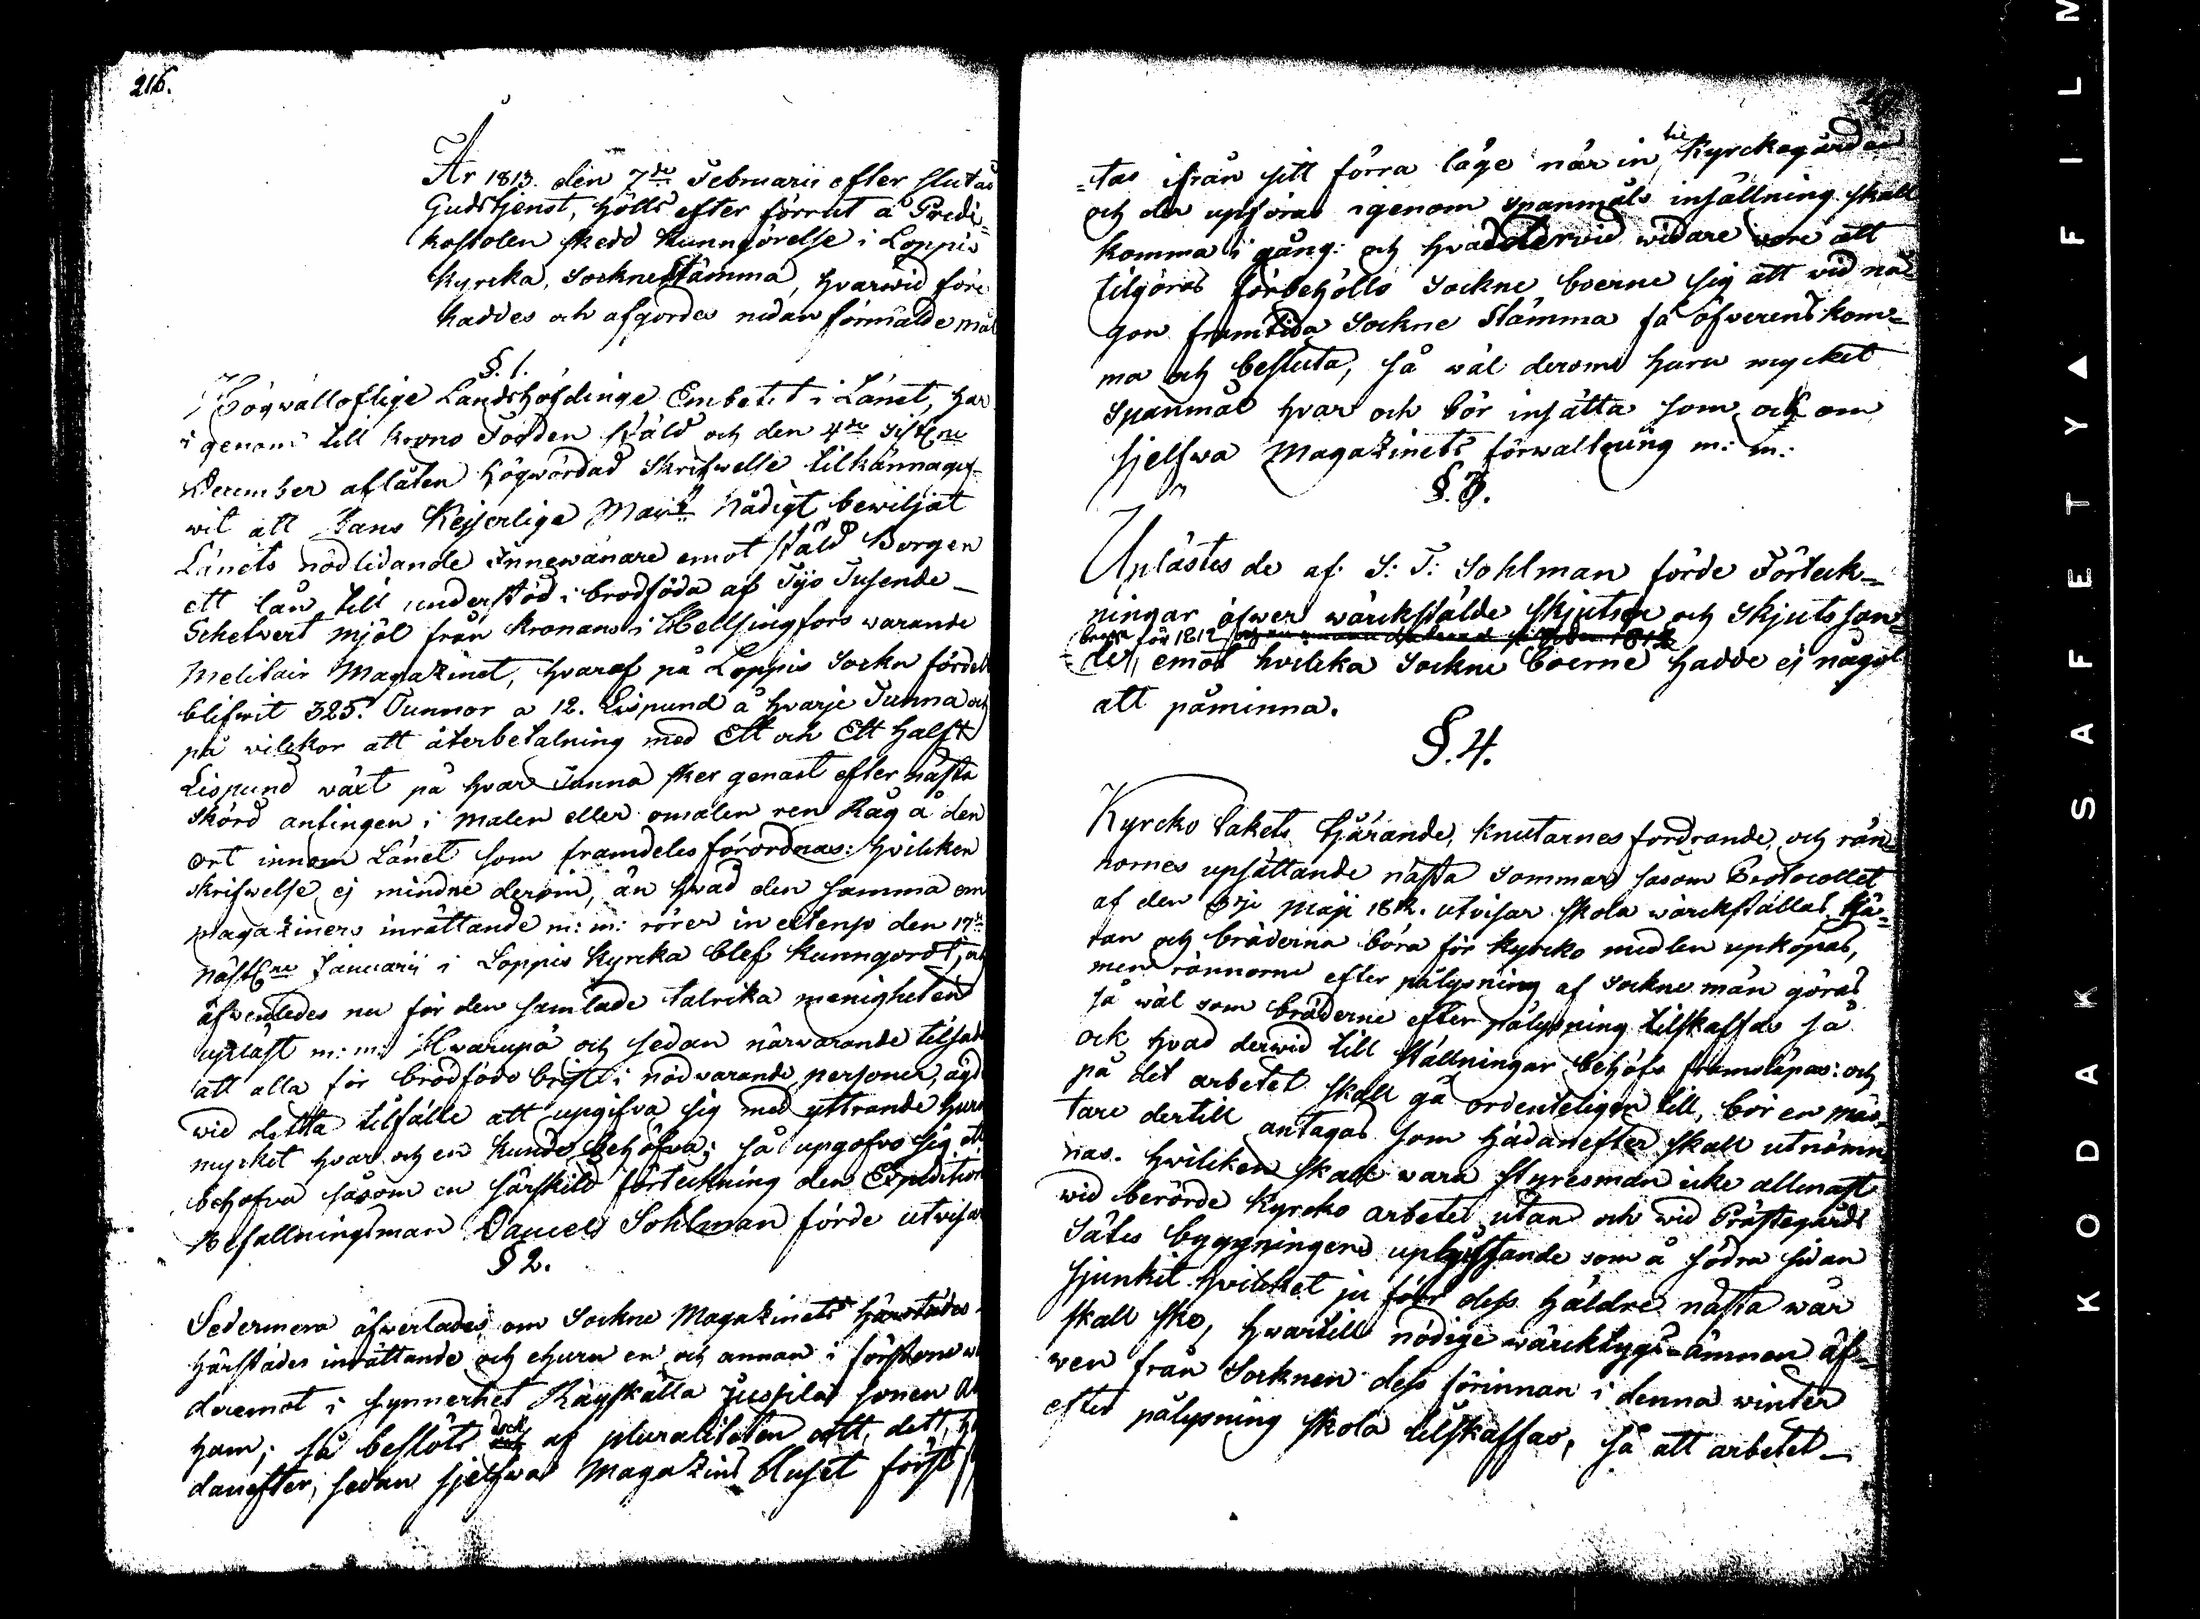 216.
År 1813. den 7de Februarii efter slutad
Gudstjenst, hölls efter förrut å Predi-
kostolen skedd kunngörelse i Loppis
Kyrcka, Sockne Stämma, hvarwid före
hades och afgordes nedan förmälde mål
§. 1.
Högwälloflige Landshöfdinge Embetet i Länet, har
igenom till Krono Fogden ställd och den 4de sistl:ne
December aflåten högwördad skrifwelse tilkännagif-
wit att Hans Kejserlige Maij:t Nådigt bewiljat
Länets nödlidande Innewånare emot ställd Borgen
ett lån till understöd i brodföda af Tijo Tusende
Schetvert mjöl från Kronans i Hellsingfors warande
Militair Magazinet, hvaraf på Loppis Sockn fördelt
blifwit 325. Tunnor a 12. Lispund å hvarje Tunna och
på vilckor att återbetalning med Ett och Ett halft
Lispund växt på hvar Tunna sker genast efter nästa
skörd antingen i malen eller omalen ren Råg å den
ort innom Länet som framdeles förordnas: hvilcken
skrifwelse ej mindre derom, än hvad den samma om
magaziners inrättande m: m: rörer in extenso den 17de
nästl:ne Januarii i Loppis Kyrcka blef kunngordt,
äfwenledes nu för den samlade talrika menigheten
upläst m: m: Hwarupå och sedan närwarande
att alla för brodfödo brist i nöd warande personer,
wid detta tilfälle att upgifva sig med yttrande huru
mycket hvar och en kunde behöfva; så upgofvo sig
behofva såsom en särskild förteckning den Expeditions
Befallningsman Daniel Sohlman förde utvisar
§ 2.
Sedermera äfverlades om Sockne Magazinets härstädes
härstädes inrättande och ehuru en och annan i förstone
deremot i synnerhet Räyskälla Jussilas sonen
ham; så beslöts dock af pluraliteten att, dett,
danefter, sedan sjelfwa Magazins Huset först
-tas ifrån sitt förra läge när in til Kyrckogården
och der upföras igenom spanmåls insättning skall
komma i gång: och hvad derwid widare vore att
tilgöras förbehöllo Sockne boerne sig att vid nå-
gon framtida Sockne Stämma få öfverenskom-
ma och besluta, så wäl derom huru mycket
Spanmål hvar och bör insätta som och om
sjelfwa Magazinets förwaltning m: m:
§. 3.
Uplästes de af S: T: Sohlman förde Förteck-
ningar öfwer wärckstälde skjutser och Skjuts
för 1812
emot hvilcka Sockne boerne hadde ej något
att påminna.
§. 4.
Kyrcko takets tjärande, knutarnes fordrande, och rän-
nornes upsättande nästa Sommar såsom Protocollet
af den 3dje Maji 1812. utvisar skola wärckställas,
ran och bräderna böra för Kyrcko medlen upköpas,
men rännorne efter pålysning af Sockne män göras
så wäl som bräderne efter pålysning tilskaffas så
ock hvad derwid till ställningar behöfs framsläpas: och
på det arbetet skall gå ordenteligen till, bör en mäs-
tare dertill antagas som hädanefter skall utnämn-
nas. hvilcken skall wara styresman icke allenast
wid berörde Kyrcko arbetet utan och wid Prästegårds
Sätes byggningens uplyftande som å södra sidan
sjunkit hvilcket ju förr dess häldre nästa wår
skall ske, hwartill nödige wärcktygs-ämnen äf-
wen från Socknen dess förinnan i denna winter
efter pålysning skola tilskaffas, så att arbetet
KODAK SAFETY FILM